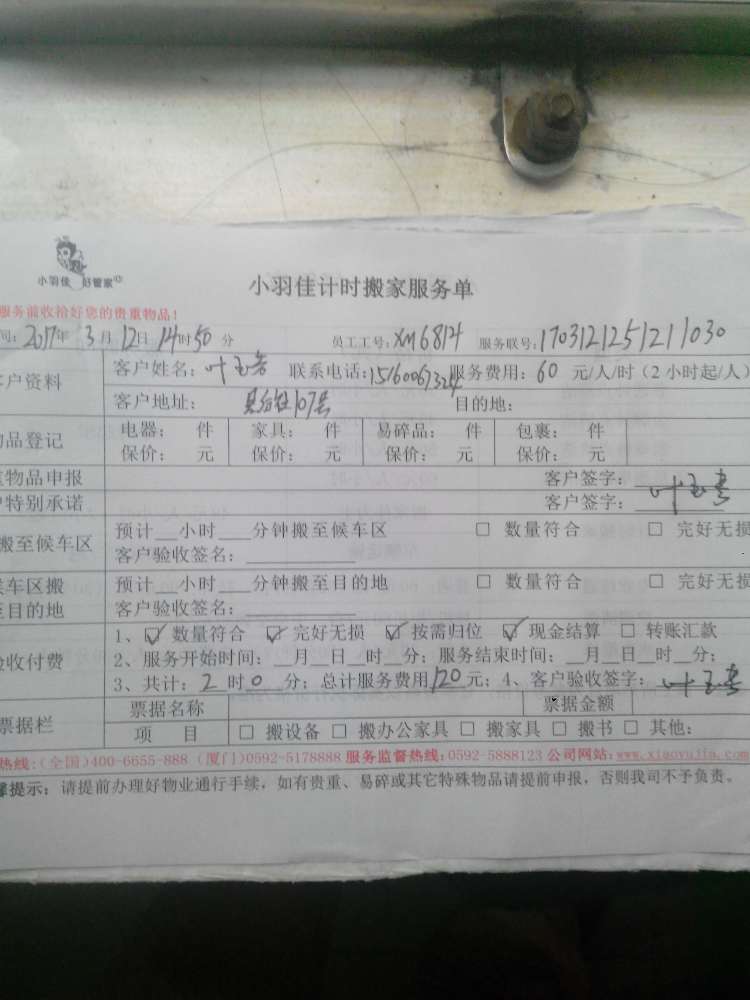 小羽佳 好管家
小羽佳计时搬家服务单
服务前收拾好您的贵重物品!
间: 2017年 3月 12日 14时50分 员工工号: XM6814 服务联号: 170312125121 1030
户资料 客户姓名: 叶玉 联系电话: 服务费用: 60 元/人/时(2小时起/人)
客户地址: 107号 目的地:
物品登记 电器: 件 家具: 件 易碎品: 件 包裹: 件
保价: 元 保价: 元 保价: 元 保价: 元
重物品申报 客户签字:
户特别承诺 客户签字: 叶玉
搬至候车区 预计__小时____分钟搬至候车区 □ 数量符合 □ 完好无损
客户验收签名:
候车区搬 预计__小时____分钟搬至目的地 □ 数量符合 □ 完好无损
至目的地 客户验收签名:
验收付费 1、☑ 数量符合 ☑ 完好无损 ☑ 按需归位 ☑ 现金结算 □ 转账汇款
2、服务开始时间: __月__日__时__分; 服务结束时间: __月__日__时__分;
3、共计: 2 时 0 分; 总计服务费用 120 元; 4、客户验收签字: 叶玉
票据栏 票据名称 票据金额
项 目 □ 搬设备 □ 搬办公家具 □ 搬家具 □ 搬书 □ 其他:
热线:(全国)400-6655-888 (厦门)0592-5178888 服务监督热线:0592-5888123 公司网站:www.xiaoyujia.com
馨提示: 请提前办理好物业通行手续,如有贵重、易碎或其它特殊物品请提前申报,否则我司不予负责。